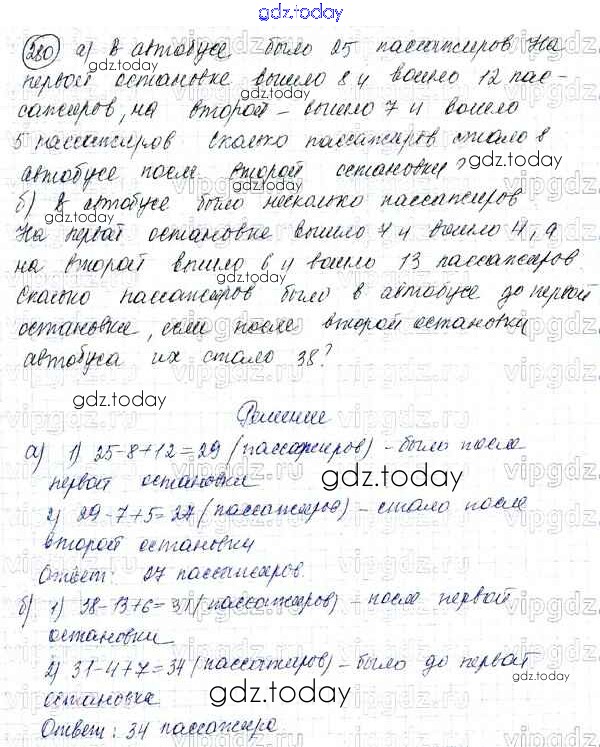 gdz.today
280 а) В автобусе было 25 пассажиров На
первой остановке вышло 8 и вошло 12 пас-
сажиров, на второй - вышло 7 и вошло
5 пассажиров Сколько пассажиров стало в
автобусе после второй остановки?
б) В автобусе было несколько пассажиров
На первой остановке вышло 7 и вошло 4, а
на второй вышло 6 и вошло 13 пассажиров.
Сколько пассажиров было в автобусе до первой
остановки, если после второй остановки
автобуса их стало 38?
gdz.today
Решение
а) 1) 25-8+12=29 (пассажиров) - было после
первой остановки
gdz.today
2) 29-7+5=27 (пассажиров) - стало после
второй остановки
Ответ: 27 пассажиров.
б) 1) 38-13+6=31 (пассажиров) - после первой
остановки
2) 31-4+7=34 (пассажиров) - было до первой
остановке
gdz.today
Ответ: 34 пассажира